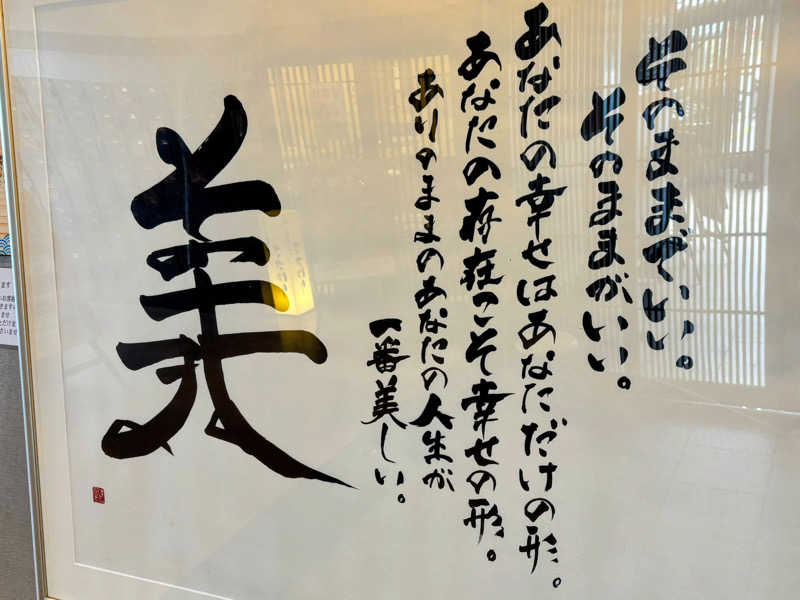 そのままでいい。
そのままがいい。
あなたの幸せはあなただけの形。
あなたの存在こそ幸せの形。
ありのままのあなたの人生が
一番美しい。
美